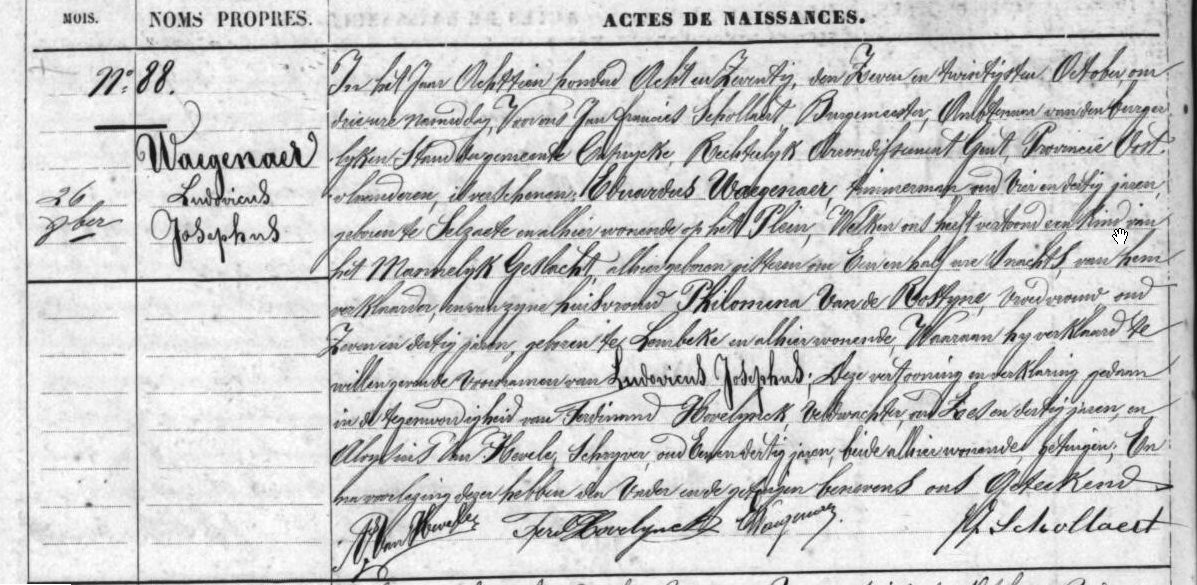 MOIS.
NOMS PROPRES.
ACTES DE NAISSANCES.
N.º 88.
Waegenaer
Ludovicus
Josephus
26
In het Jaar Achttien honderd Acht en Zeventig, den Zeven en twintigsten October, om
drie ure namiddag, Voor ons Jan Francies Schollaert Burgemeester, Ambtenaar van den burger
lyken Stand der gemeente Regterlyk Arrondissement Gent, Provincie Oost
vlaanderen, is verschenen: Eduardus Waegenaer, timmerman oud Vier en dertig jaren,
geboren te Selzaete en alhier wonende op het Plein, Welken ons heeft vertoond een Kind van
het Mannelyk Geslacht, alhier geboren gisteren om Een en half ure 's nachts van hem
verklaarder, en van zyne huisvrouw Philomena Van de Rostyne, oud
Zeven en dertig jaren, geboren te Lembeke en alhier wonende, Waaraan hy verklaard te
willen geven de Voornamen van Ludovicus Josephus; Deze vertooning en verklaring gedaan
in de tegenwoordigheid van Ferdinand Hovelynck, Veldwachter, oud Zes en dertig jaren, en
Aloysius Van Hevele, Schryver, oud Een en dertig jaren, beide alhier wonende getuigen; En
na voorlezing dezer hebben den Vader en de getuigen benevens ons Geteekend
Van Hevele Ferd Hovelynck Waegenaer. Schollaert